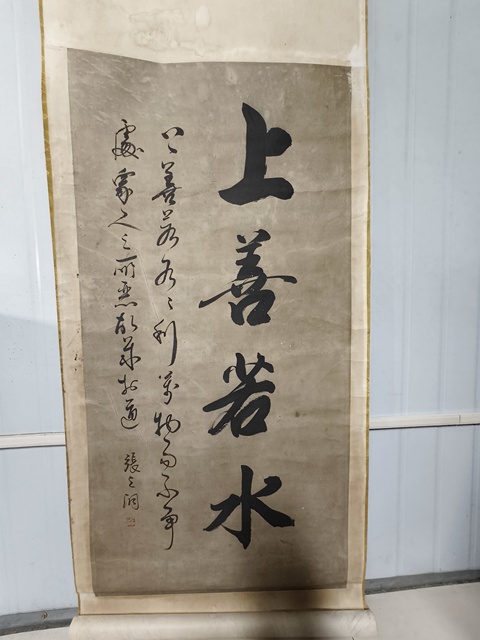 上善若水
上善若水〻利萬物而不爭
處眾人之所惡故幾於道
張之洞